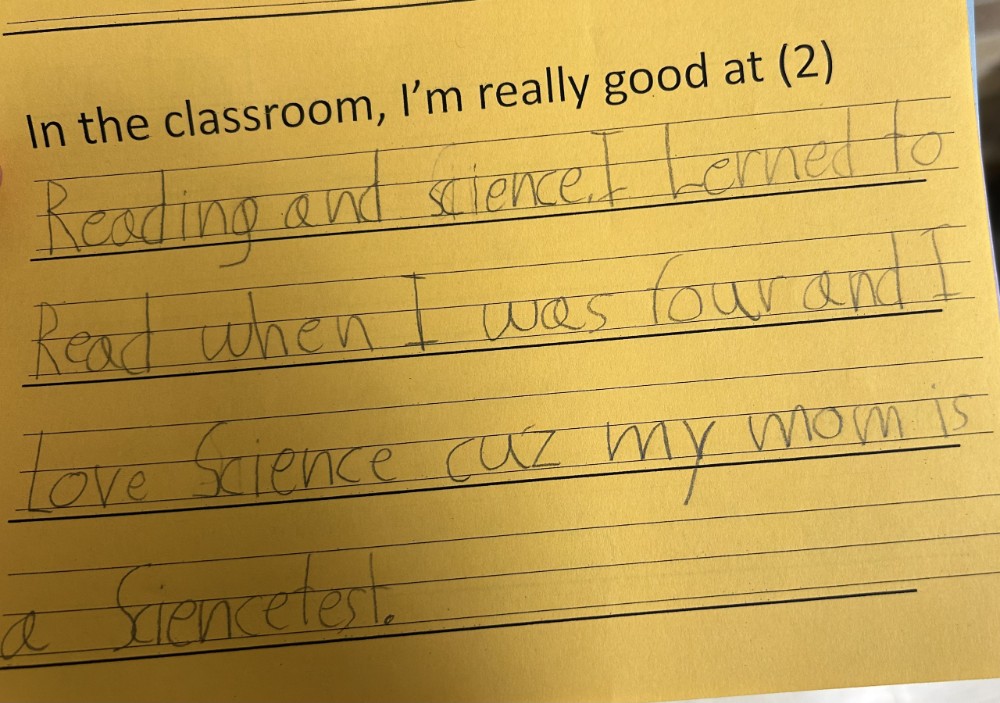 In the classroom, I'm really good at (2)
Reading and science. I Lerned to
Read when I was four and I
Love Science cuz my mom is
a Sciencetest.